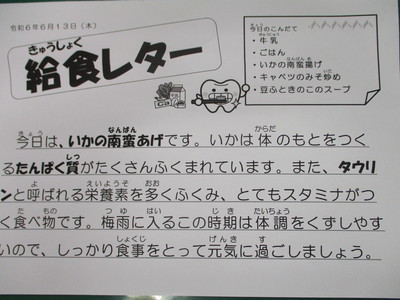 令和6年6月13日(木)
給食レター
今日のこんだて
・牛乳
・ごはん
・いかの南蛮揚げ
・キャベツのみそ炒め
・豆ふときのこのスープ
今日は、いかの南蛮あげです。いかは体のもとをつく
るたんぱく質がたくさんふくまれています。また、タウリ
ンと呼ばれる栄養素を多くふくみ、とてもスタミナがつ
く食べ物です。梅雨に入るこの時期は体調をくずしやす
いので、しっかり食事をとって元気に過ごしましょう。